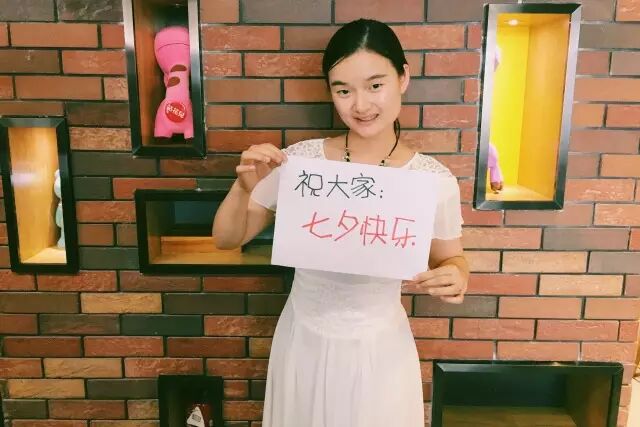 祝大家:
七夕快乐